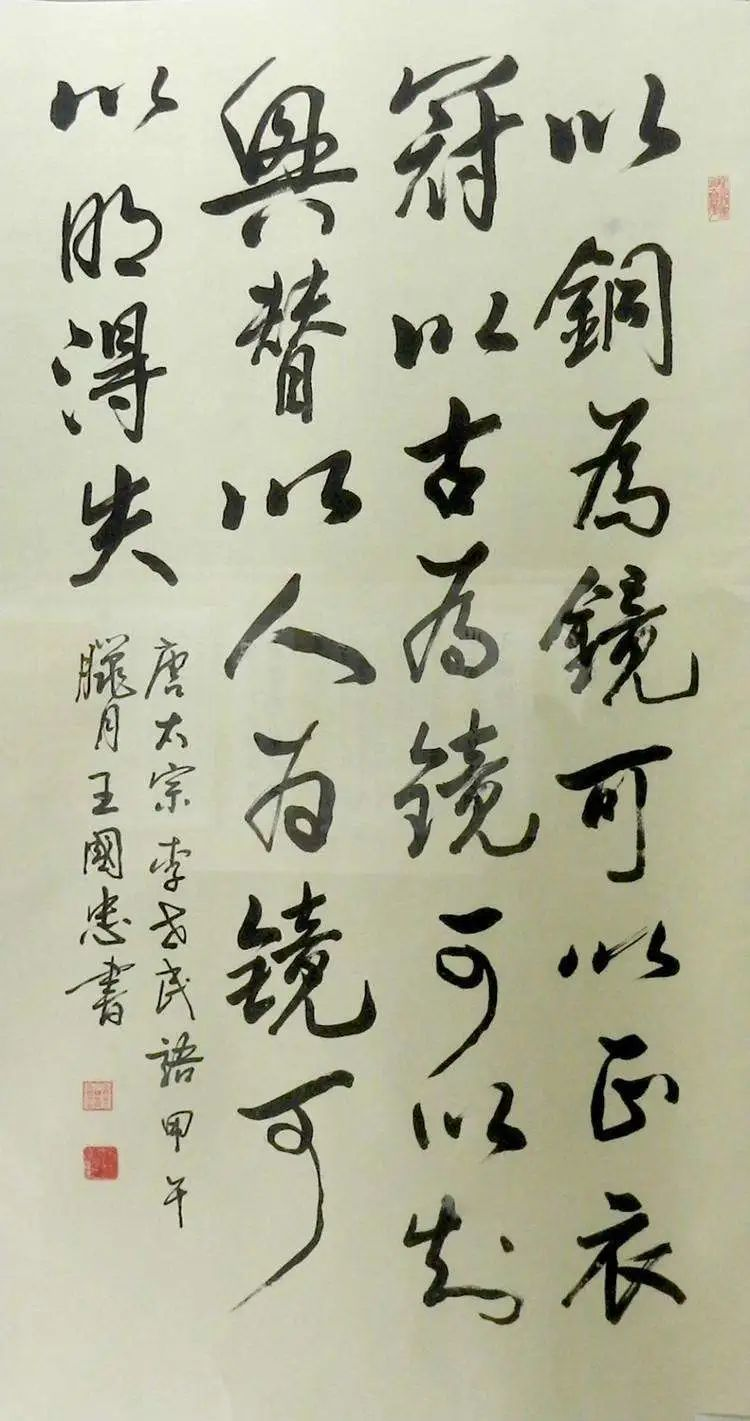 以銅為鏡可以正衣
冠以古為鏡可以知
興替以人為鏡可
以明得失
唐太宗李世民語甲午
臘月王國忠書